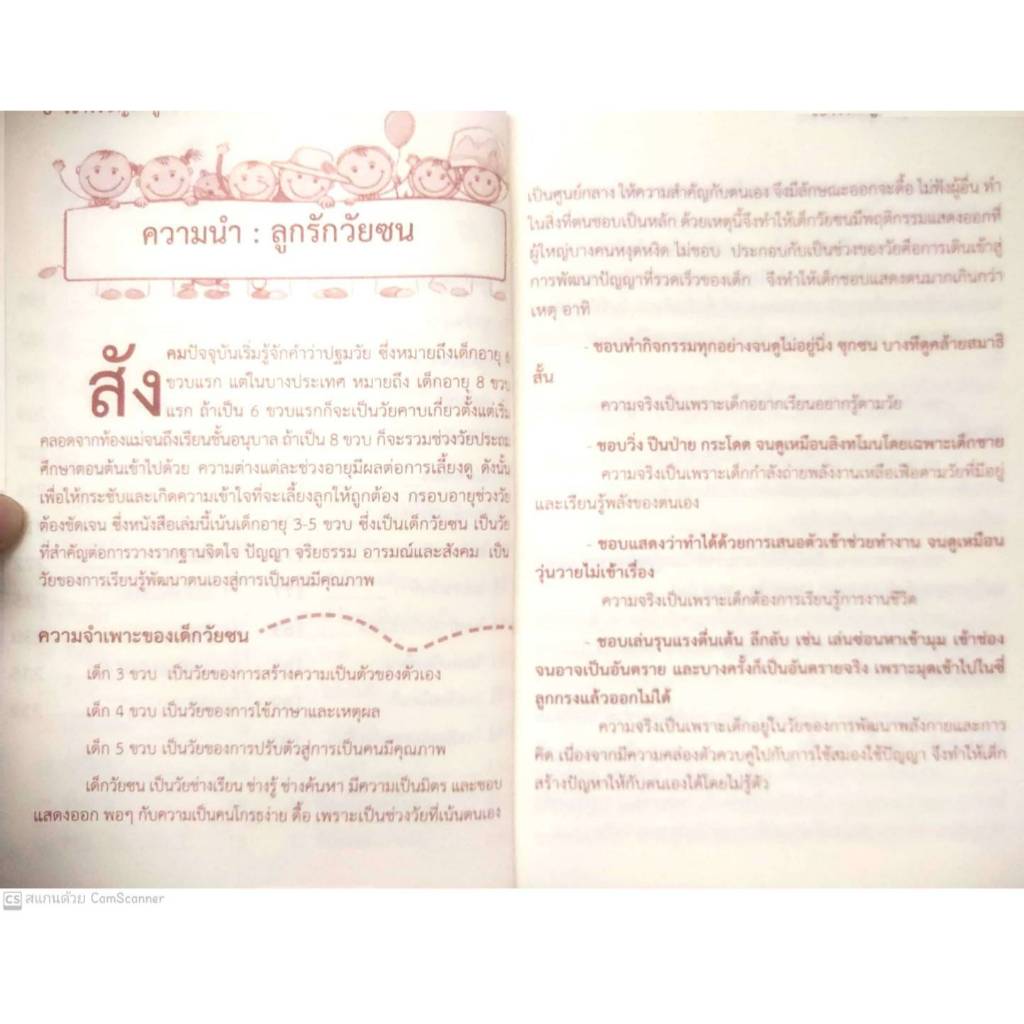 ความนำ : ลูกรักวัยซน
สังคมปัจจุบันเริ่มรู้จักคำว่าปฐมวัย ซึ่งหมายถึงเด็กอายุ 6
ขวบแรก แต่ในบางประเทศ หมายถึง เด็กอายุ 8 ขวบ
แรก ถ้าเป็น 6 ขวบแรกก็จะเป็นวัยคาบเกี่ยวตั้งแต่เริ่ม
คลอดจากท้องแม่จนถึงเรียนชั้นอนุบาล ถ้าเป็น 8 ขวบ ก็จะรวมช่วงวัยประถม
ศึกษาตอนต้นเข้าไปด้วย ความต่างแต่ละช่วงอายุมีผลต่อการเลี้ยงดู ดังนั้น
เพื่อให้กระชับและเกิดความเข้าใจที่จะเลี้ยงลูกให้ถูกต้อง กรอบอายุช่วงวัย
ต้องชัดเจน ซึ่งหนังสือเล่มนี้เน้นเด็กอายุ 3-5 ขวบ ซึ่งเป็นเด็กวัยซน เป็นวัย
ที่สำคัญต่อการวางรากฐานจิตใจ ปัญญา จริยธรรม อารมณ์และสังคม เป็น
วัยของการเรียนรู้พัฒนาตนเองสู่การเป็นคนมีคุณภาพ
ความจำเพาะของเด็กวัยซน
เด็ก 3 ขวบ เป็นวัยของการสร้างความเป็นตัวของตัวเอง
เด็ก 4 ขวบ เป็นวัยของการใช้ภาษาและเหตุผล
เด็ก 5 ขวบ เป็นวัยของการปรับตัวสู่การเป็นคนมีคุณภาพ
เด็กวัยซน เป็นวัยช่างเรียน ช่างรู้ ช่างค้นหา มีความเป็นมิตร และชอบ
แสดงออก พอๆ กับความเป็นคนโกรธง่าย ดื้อ เพราะเป็นช่วงวัยที่เน้นตนเอง
เป็นศูนย์กลาง ให้ความสำคัญกับตนเอง จึงมีลักษณะออกจะดื้อ ไม่ฟังผู้อื่น ทำ
ในสิ่งที่ตนชอบเป็นหลัก ด้วยเหตุนี้จึงทำให้เด็กวัยซนมีพฤติกรรมแสดงออกที่
ผู้ใหญ่บางคนหงุดหงิด ไม่ชอบ ประกอบกับเป็นช่วงของวัยคือการเดินเข้าสู่
การพัฒนาปัญญาที่รวดเร็วของเด็ก จึงทำให้เด็กชอบแสดงตนมากเกินกว่า
เหตุ อาทิ
- ชอบทำกิจกรรมทุกอย่างจนดูไม่อยู่นิ่ง ซุกซน บางทีดูคล้ายสมาธิ
สั้น
ความจริงเป็นเพราะเด็กอยากเรียนอยากรู้ตามวัย
- ชอบวิ่ง ปีนป่าย กระโดด จนดูเหมือนลิงทโมนโดยเฉพาะเด็กชาย
ความจริงเป็นเพราะเด็กกำลังถ่ายพลังงานเหลือเฟือตามวัยที่มีอยู่
และเรียนรู้พลังของตนเอง
- ชอบแสดงว่าทำได้ด้วยการเสนอตัวเข้าช่วยทำงาน จนดูเหมือน
วุ่นวายไม่เข้าเรื่อง
ความจริงเป็นเพราะเด็กต้องการเรียนรู้การงานชีวิต
- ชอบเล่นรุนแรงตื่นเต้น ลึกลับ เช่น เล่นซ่อนหาเข้ามุม เข้าช่อง
จนอาจเป็นอันตราย และบางครั้งก็เป็นอันตรายจริง เพราะมุดเข้าไปในซี่
ลูกกรงแล้วออกไม่ได้
ความจริงเป็นเพราะเด็กอยู่ในวัยของการพัฒนาพลังกายและการ
คิด เนื่องจากมีความคล่องตัวควบคู่ไปกับการใช้สมองใช้ปัญญา จึงทำให้เด็ก
สร้างปัญหาให้กับตนเองได้โดยไม่รู้ตัว
CS สแกนด้วย CamScanner